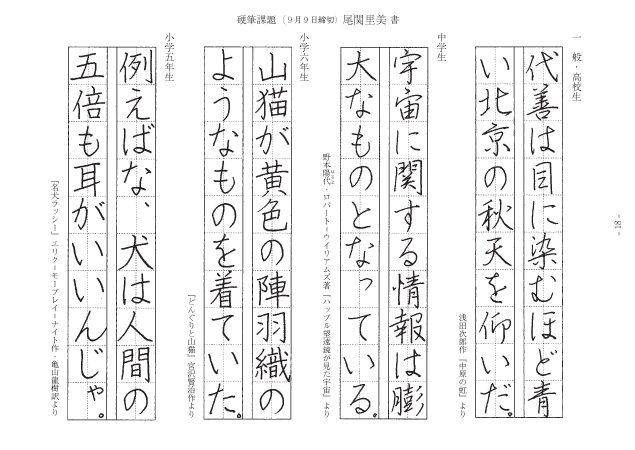 硬筆課題（９月９日締切）尾関里美 書
一般・高校生
代善は目に染むほど青
い北京の秋天を仰いだ。
浅田次郎作『中原の虹』より
中学生
宇宙に関する情報は膨
大なものとなっている。
野本陽代・ロバート＝ウイリアムズ著『ハッブル望遠鏡が見た宇宙』より
小学六年生
山猫が黄色の陣羽織の
ようなものを着ていた。
『どんぐりと山猫』宮沢賢治作より
小学五年生
例えばな、犬は人間の
五倍も耳がいいんじゃ。
『名犬ラッシー』エリク＝モーブレイ＝ナイト作　亀山龍樹訳より